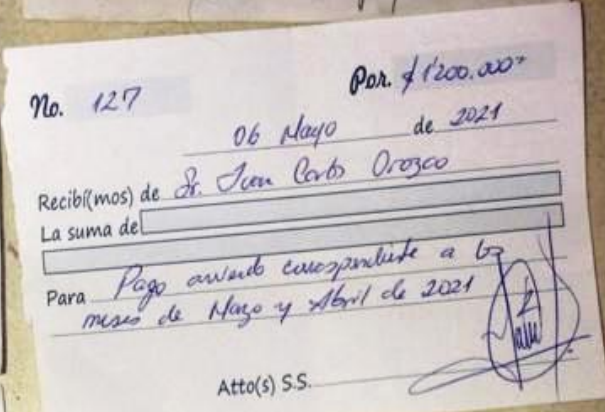 No. 127 Por. $1'200.000=
06 Mayo de 2021
Recibí(mos) de Sr. Juan Carlos Orozco
La suma de
Para Pago arriendo correspondiente a los
meses de Marzo y Abril de 2021
Atto(s) S.S.